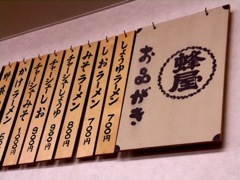 蜂屋
お品がき
しょうゆラーメン 700円
しおラーメン 700円
みそラーメン 700円
チャーシューしょうゆ 900円
チャーシューしお 900円
チャーシューみそ
かけラーメン